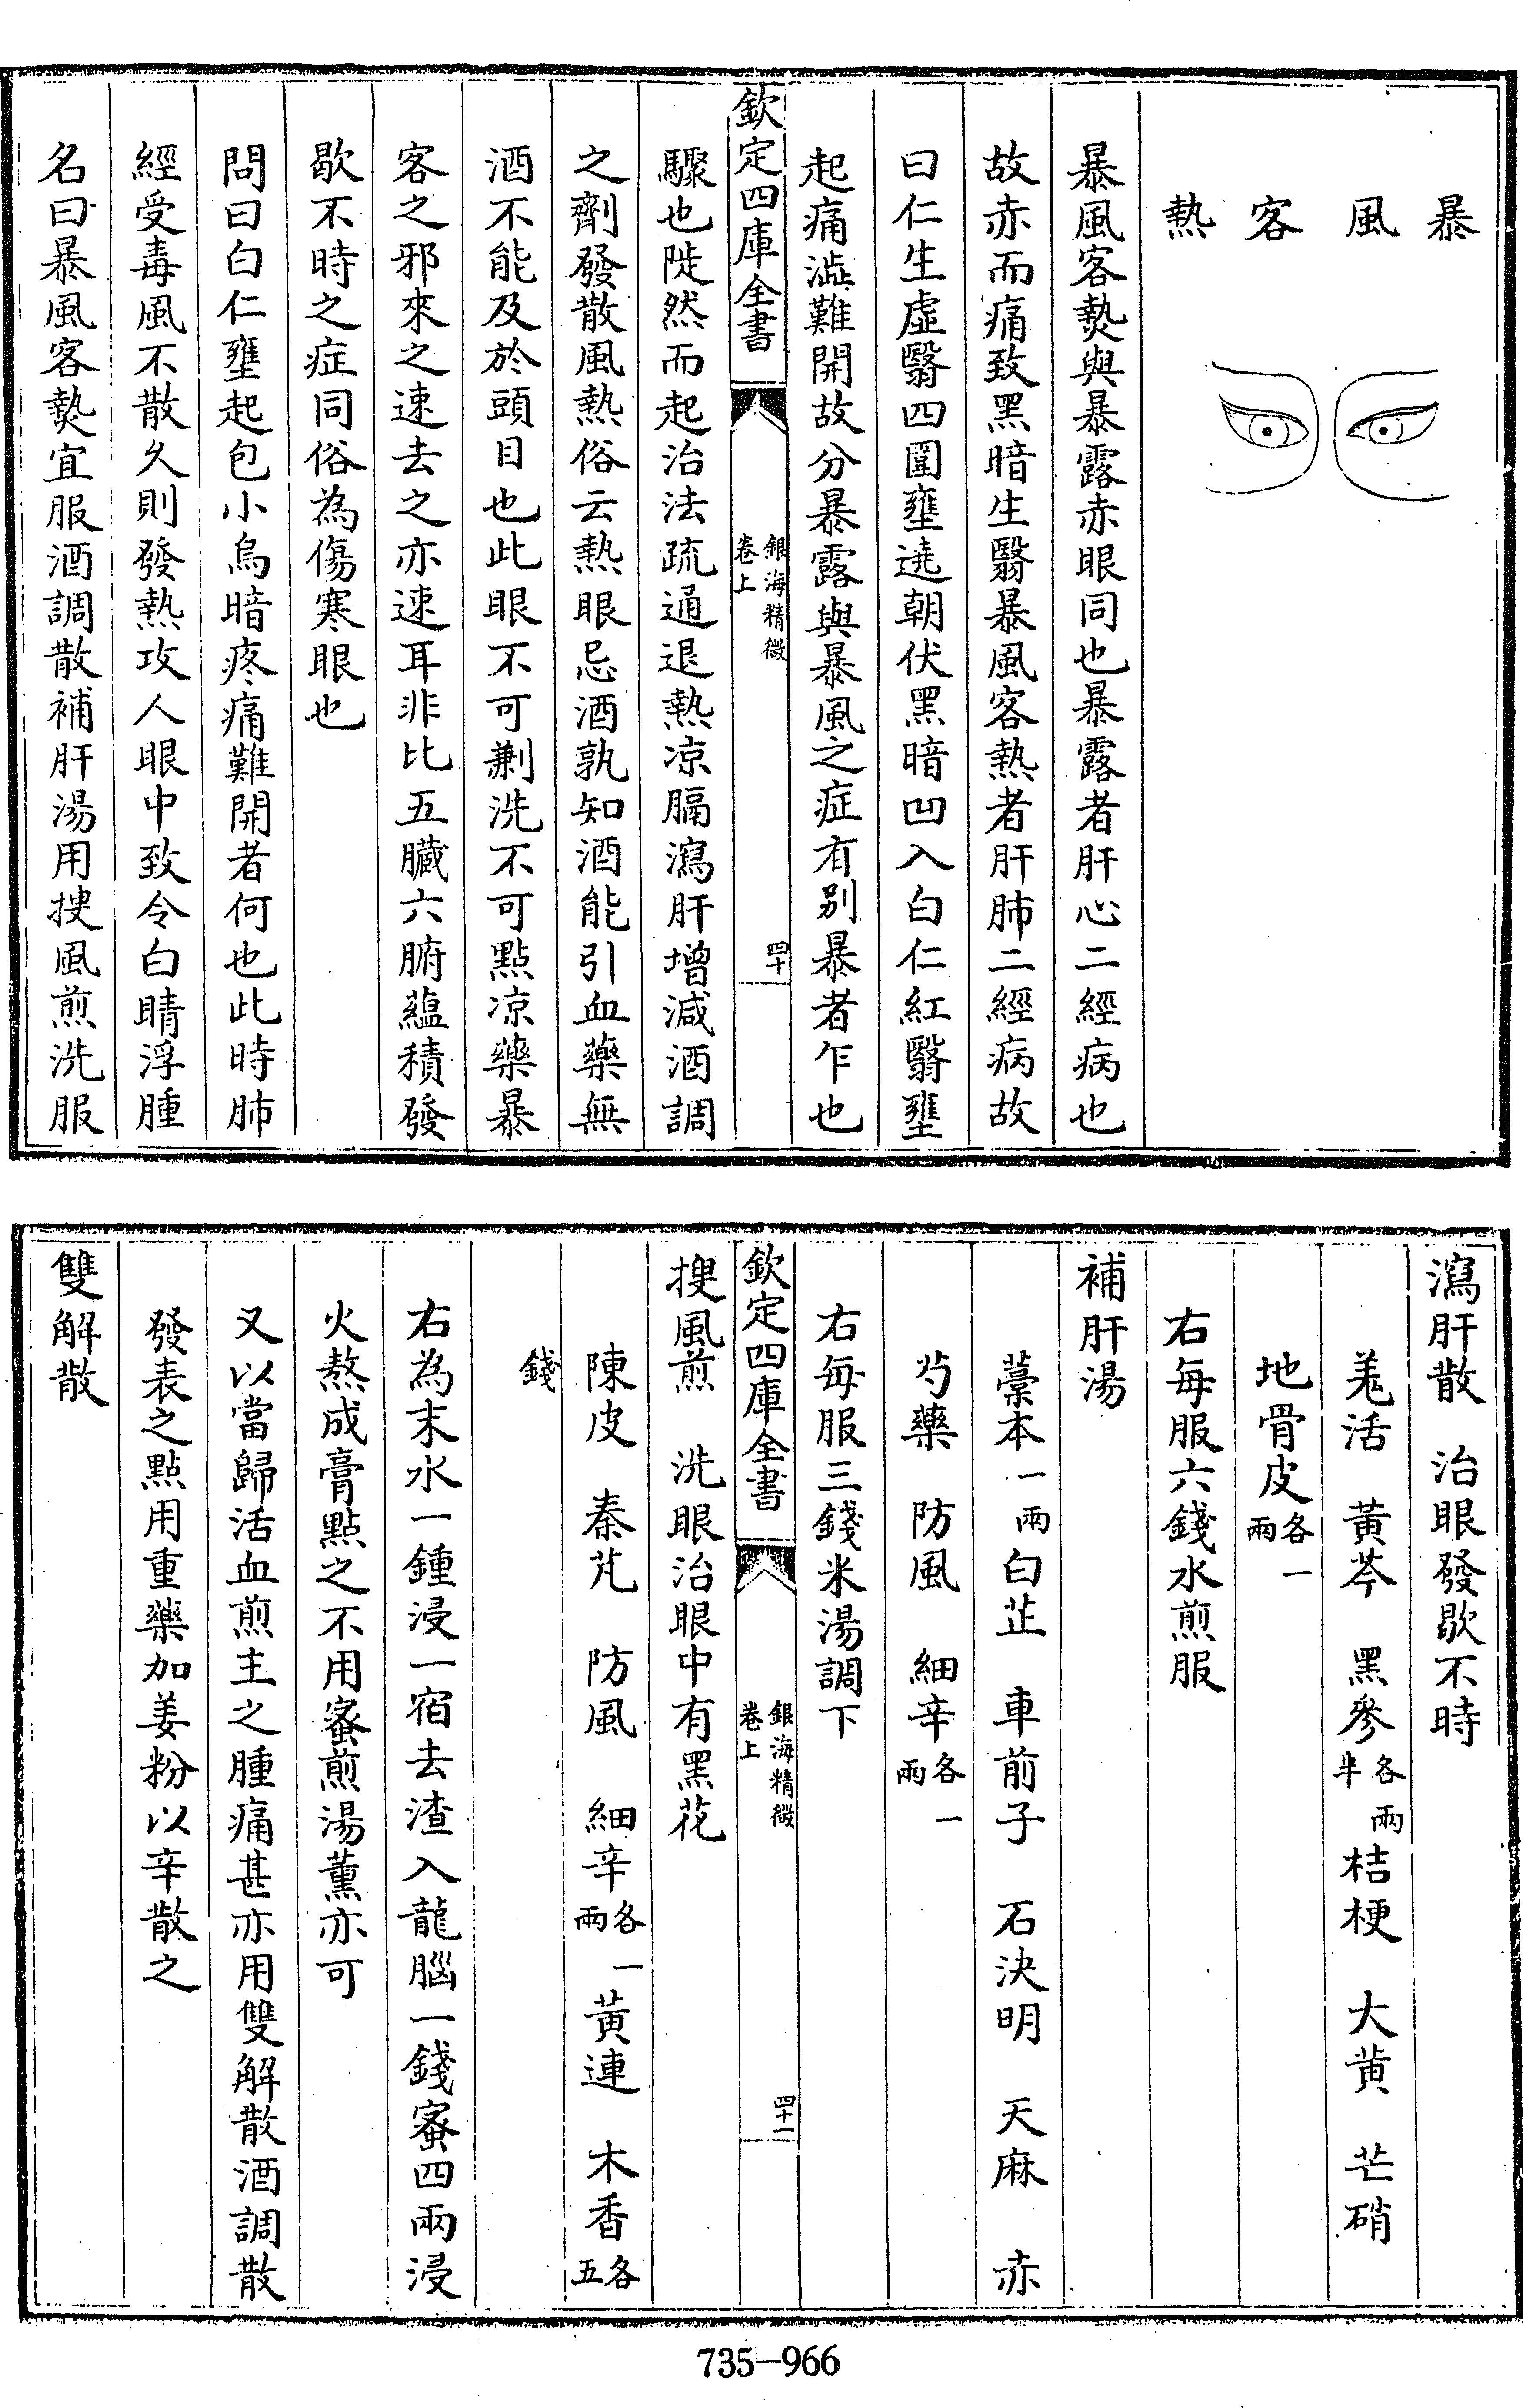 暴風客熱
暴風客熱與暴露赤眼同也暴露者肝心二經病也
故赤而痛致黑暗生翳暴風客熱者肝肺二經病故
曰仁生虛翳四圍壅遶朝伏黑暗凹入白仁紅翳壅
起痛澁難開故分暴露與暴風之症有別暴者乍也
欽定四庫全書
銀海精微
卷上
四十
驟也陡然而起治法疏通退熱凉膈瀉肝增減酒調
之劑發散風熱俗云熱眼忌酒孰知酒能引血藥無
酒不能及於頭目也此眼不可劆洗不可點凉藥暴
客之邪來之速去之亦速耳非比五臟六腑蘊積發
歇不時之症同俗為傷寒眼也
問曰白仁壅起包小烏暗疼痛難開者何也此時肺
經受毒風不散久則發熱攻人眼中致令白睛浮腫
名曰暴風客熱宜服酒調散補肝湯用搜風煎洗服
瀉肝散　治眼發歇不時
羗活　黃芩　黑參各兩半桔梗　大黃　芒硝
地骨皮各一兩
右每服六錢水煎服
補肝湯
藁本一兩白芷　車前子　石決明　天麻　赤
芍藥　防風　細辛各一兩
右每服三錢米湯調下
欽定四庫全書
銀海精微
卷上
四十一
搜風煎　洗眼治眼中有黑花
陳皮　秦芃　防風　細辛各一兩黃連　木香各五
錢
右為末水一鍾浸一宿去渣入龍腦一錢蜜四兩浸
火熬成膏點之不用蜜煎湯薰亦可
又以當歸活血煎主之腫痛甚亦用雙解散酒調散
發表之點用重藥加姜粉以辛散之
雙解散
735-966